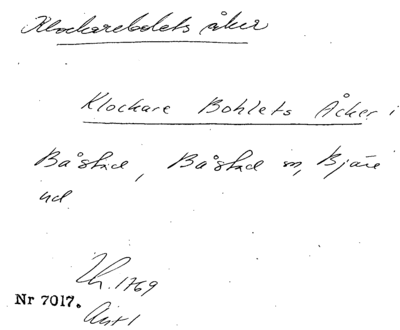 Klockarebolets åker
Klockare Bohlets Åcker i
Båstad, Båstad sn, Bjäre
hd
1769
Nr 7017.